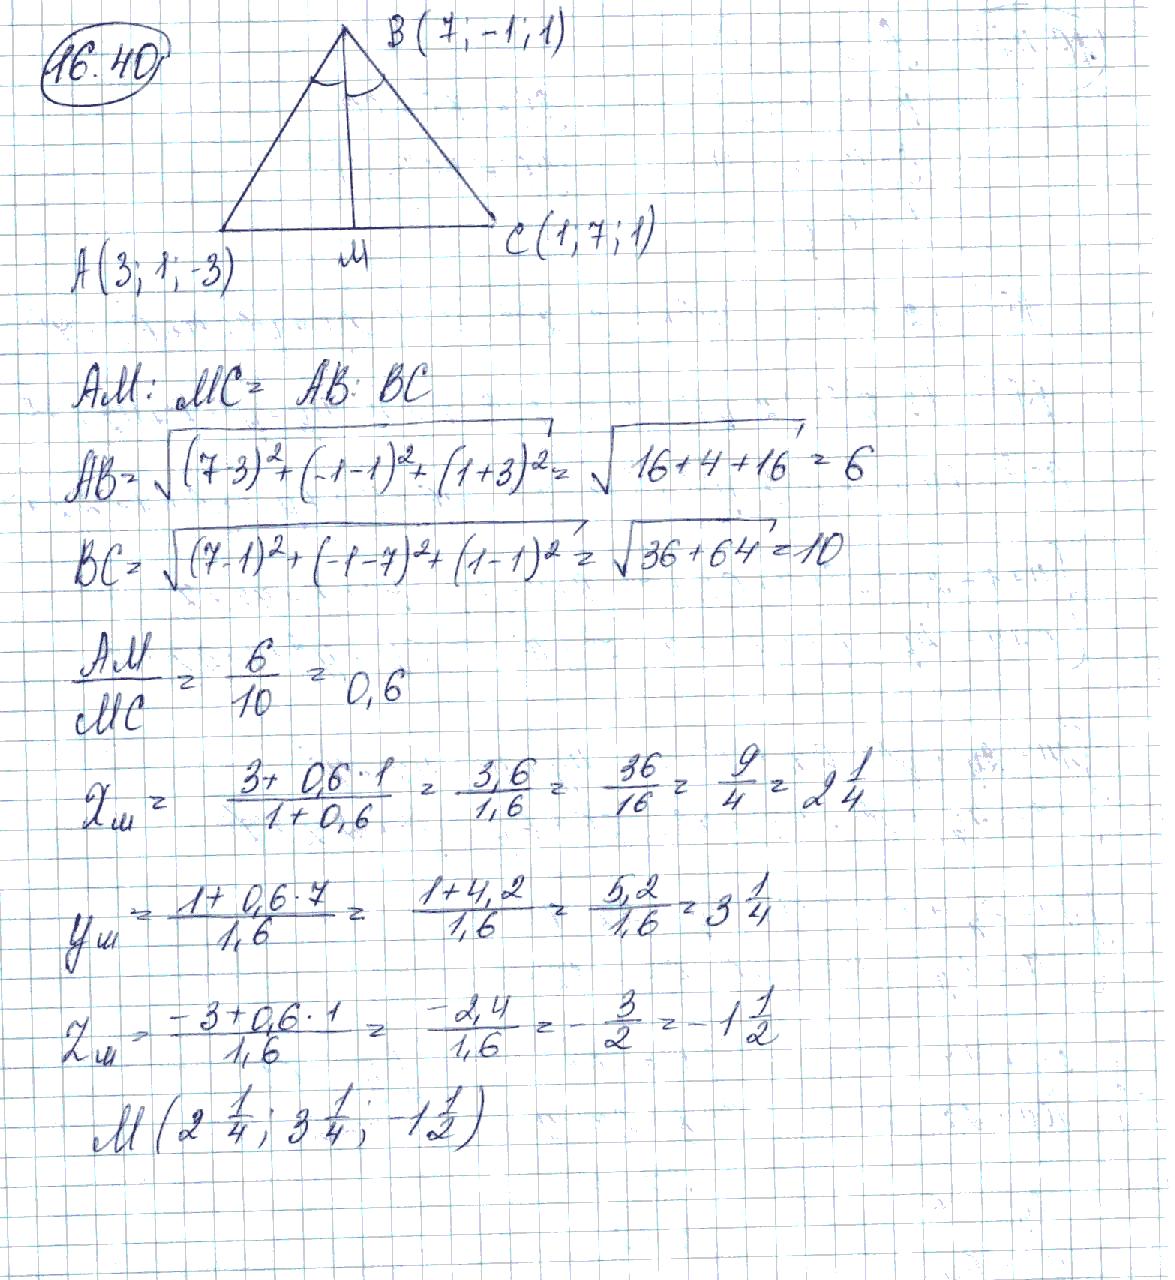 16.40
B(7; -1; 1)
C(1; 7; 1)
A(3; 1; -3)
M
AM : MC = AB : BC
AB = √((7-3)² + (-1-1)² + (1+3)²) = √(16+4+16) = 6
BC = √((7-1)² + (-1-7)² + (1-1)²) = √(36+64) = 10
AM/MC = 6/10 = 0,6
Xм = (3+0,6·1)/(1+0,6) = 3,6/1,6 = 36/16 = 9/4 = 2 1/4
Yм = (1+0,6·7)/1,6 = (1+4,2)/1,6 = 5,2/1,6 = 3 1/4
Zм = (-3+0,6·1)/1,6 = -2,4/1,6 = -3/2 = -1 1/2
M(2 1/4; 3 1/4; -1 1/2)